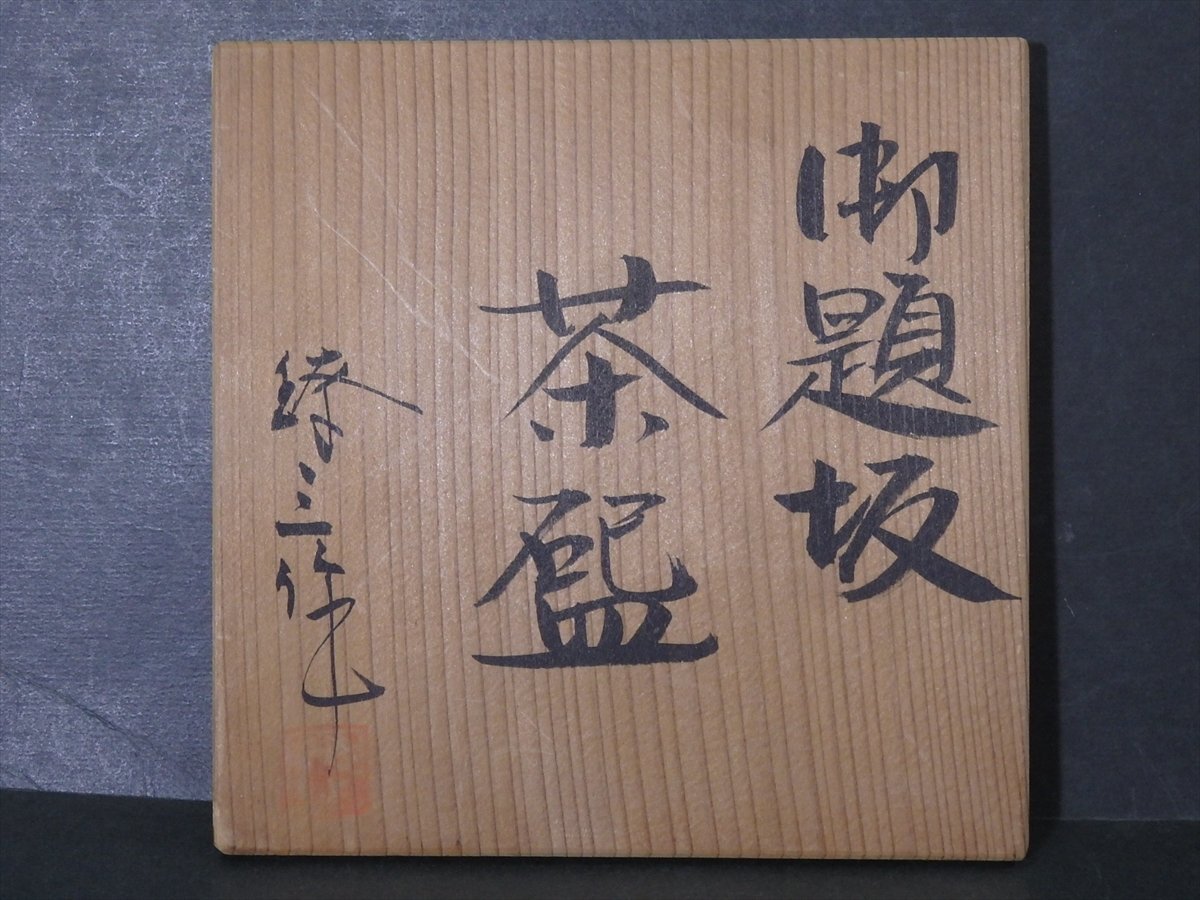 御題坂
茶盌
三作